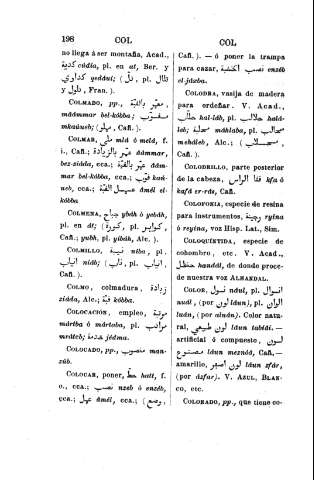 198
COL
COL
no llega á ser montaña, Acad.,
كدية cúdia, pl. en at, Ber. y
كداوي yeddui; (تل, pl. تلال
y تلول, Fran.).
COLMADO, pp., معمّر بالقبة
màâmmar bel-kóbba;
mkaúueb; (مملو, Cañ.).
COLMAR, ملى mla ó melá, f.
i., Cañ.; عمّر بالزيادة âámmar,
bez-siáda, cca.; عمّر بالقبة âám-
mar bel-kóbba, cca.; قبّب kaú-
ueb, cca.; عمل القبة âmél el-
kóbba
COLMENA, جباح ybáh ó yebáh,
pl. en át; (كورة, pl. كواير,
Cañ.; yubh, pl. yibáh, Alc.).
COLMILLO, نيبة níba, pl.
انياب niáb; (ناب, pl. انياب,
Cañ.).
COLMO, colmadura, زيادة
ziáda, Alc.; قبة kóbba.
COLOCACION, empleo, موتبة
mártba ó mártaba, pl. مراتب
merátcb; خدمة jédma.
COLOCADO, pp., منصوب man-
zúb.
COLOCAR, poner, حط hatt, f.
o., cca.; نصب nzeb ó enzéb,
cca.; عمل âmél, cca.; (وضع,
Cañ.). — ó poner la trampa
para cazar, نصب اكشبة enzéb
el-jázba.
COLODRA, vasija de madera
para ordeñar. V. Acad.,
حلاب hal-láb, pl. حلالب halá-
leb; محلبة máhlaba, pl. محالب
meháleb, Alc.; (حلاب,
Cañ.).
COLODRILLO, parte posterior
de la cabeza, قفا الراس kfa ó
kafá er-rds, Cañ.
COLOFONIA, especie de resina
para instrumentos, رجينة ryína
ó reyína, voz Hisp. Lat., Sim.
COLOQUINTIDA, especie de
cohombro, etc. V. Acad.,
حنظل handál, de donde proce-
de nuestra voz ALHANDAL.
COLOR, لون ndul, pl. الوال
nuál, (por لون láun), pl. الوان
luán, (por aluán). Color natu-
ral, لون طبيعي láun tabiâi. —
artificial ó compuesto, لون
مصنوع láun meznóâ, Cañ. —
amarillo, لون اصفر láun zfár,
(por ázfar). V. AZUL, BLAN-
CO, etc.
COLORADO, pp., que tiene co-